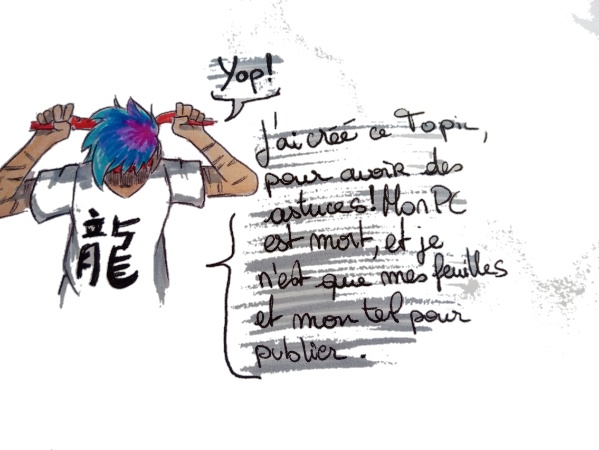 Yop!
J'ai créé ce Topic,
pour avoir des
astuces! Mon PC
est mort, et je
n'est que mes feuilles
et mon tel pour
publier.
龍